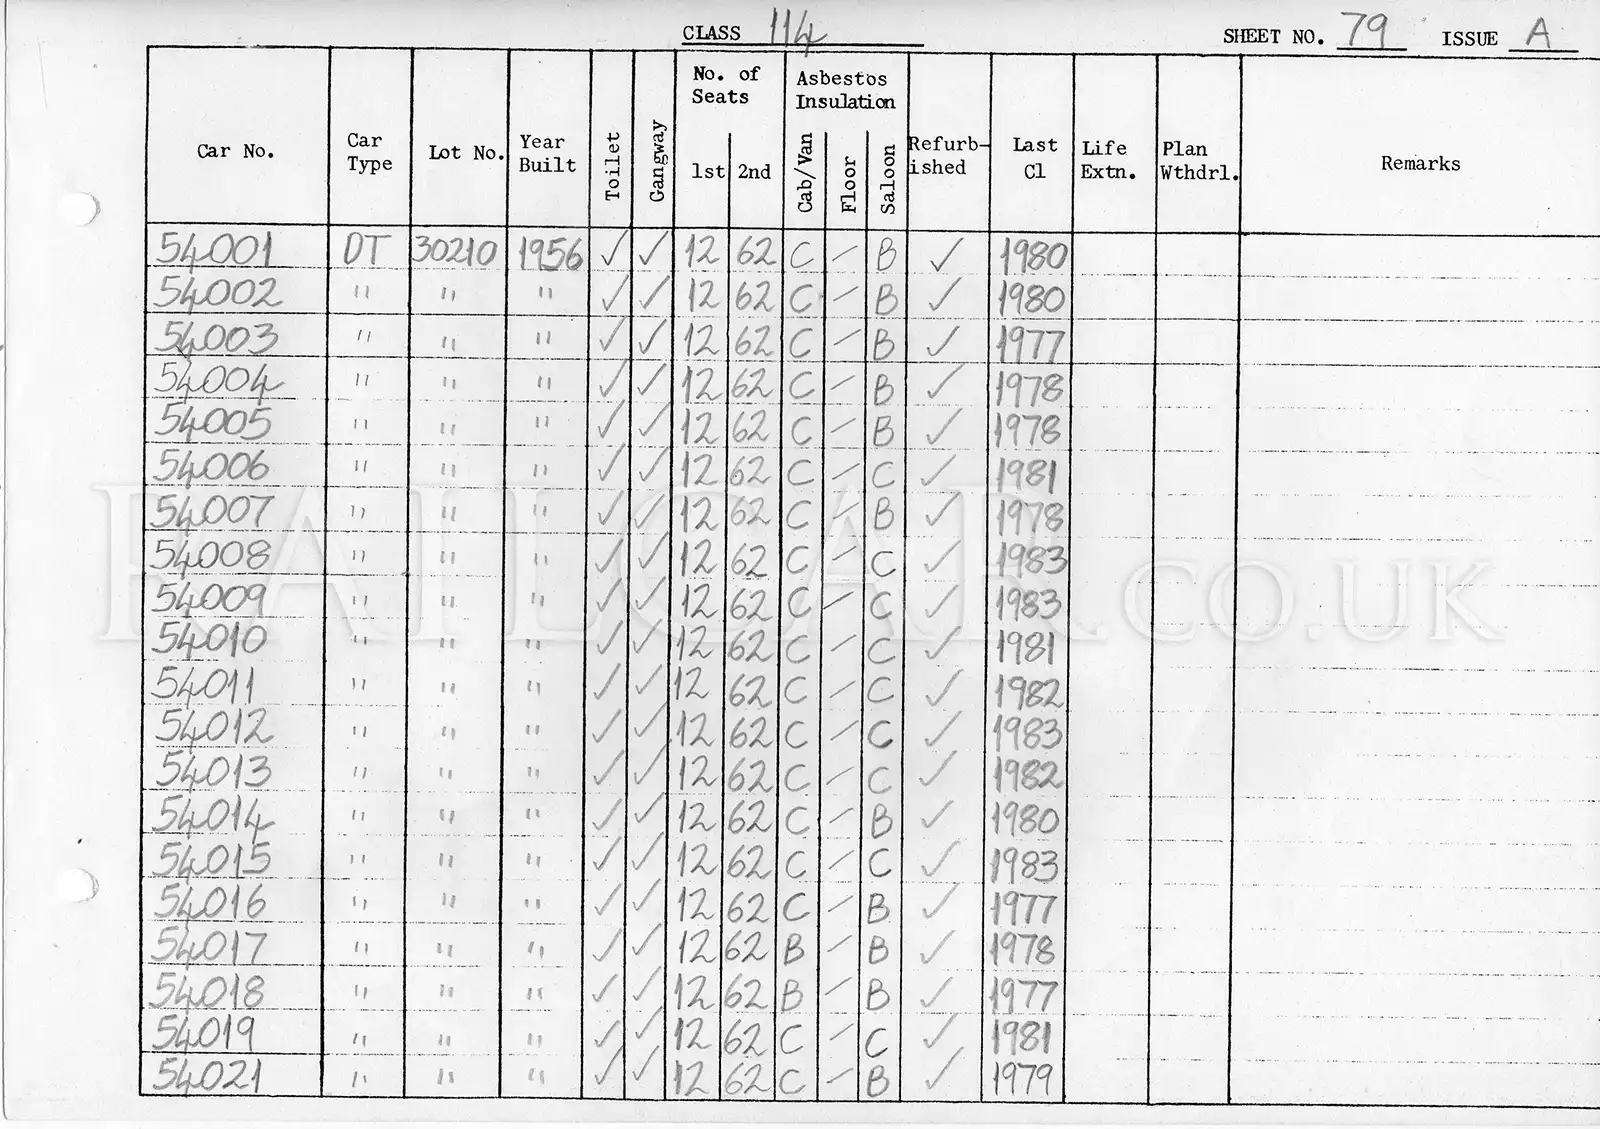 CLASS 114 SHEET NO. 79 ISSUE A
Car No. Car Type Lot No. Year Built Toilet Gangway No. of Seats 1st 2nd Asbestos Insulation Cab/Van Floor Saloon Refurb-ished Last Cl Life Extn. Plan Wthdrl. Remarks
54001 DT 30210 1956 ✓ ✓ 12 62 C — B ✓ 1980
54002 " " " ✓ ✓ 12 62 C — B ✓ 1980
54003 " " " ✓ ✓ 12 62 C — B ✓ 1977
54004 " " " ✓ ✓ 12 62 C — B ✓ 1978
54005 " " " ✓ ✓ 12 62 C — B ✓ 1978
54006 " " " ✓ ✓ 12 62 C — C ✓ 1981
54007 " " " ✓ ✓ 12 62 C — B ✓ 1978
54008 " " " ✓ ✓ 12 62 C — C ✓ 1983
54009 " " " ✓ ✓ 12 62 C — C ✓ 1983
RAILCAR.CO.UK
54010 " " " ✓ ✓ 12 62 C — C ✓ 1981
54011 " " " ✓ ✓ 12 62 C — C ✓ 1982
54012 " " " ✓ ✓ 12 62 C — C ✓ 1983
54013 " " " ✓ ✓ 12 62 C — C ✓ 1982
54014 " " " ✓ ✓ 12 62 C — B ✓ 1980
54015 " " " ✓ ✓ 12 62 C — C ✓ 1983
54016 " " " ✓ ✓ 12 62 C — B ✓ 1977
54017 " " " ✓ ✓ 12 62 B — B ✓ 1978
54018 " " " ✓ ✓ 12 62 B — B ✓ 1977
54019 " " " ✓ ✓ 12 62 C — C ✓ 1981
54021 " " " ✓ ✓ 12 62 C — B ✓ 1979